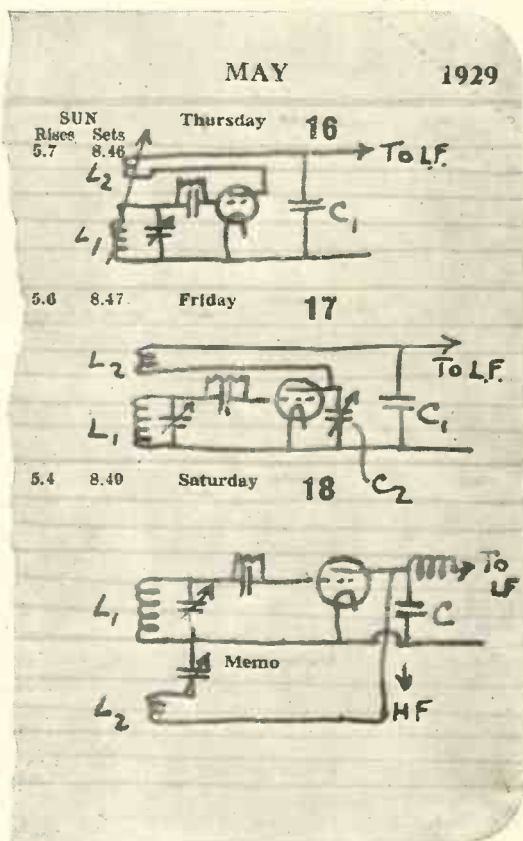 MAY 1929
SUN
Rises Sets Thursday 16
5.7 8.46 To L.F.
L2
L1 C1
5.6 8.47 Friday 17
L2 To L.F.
L1 C1
C2
5.4 8.49 Saturday 18
To
LF
L1 C
Memo
L2 HF